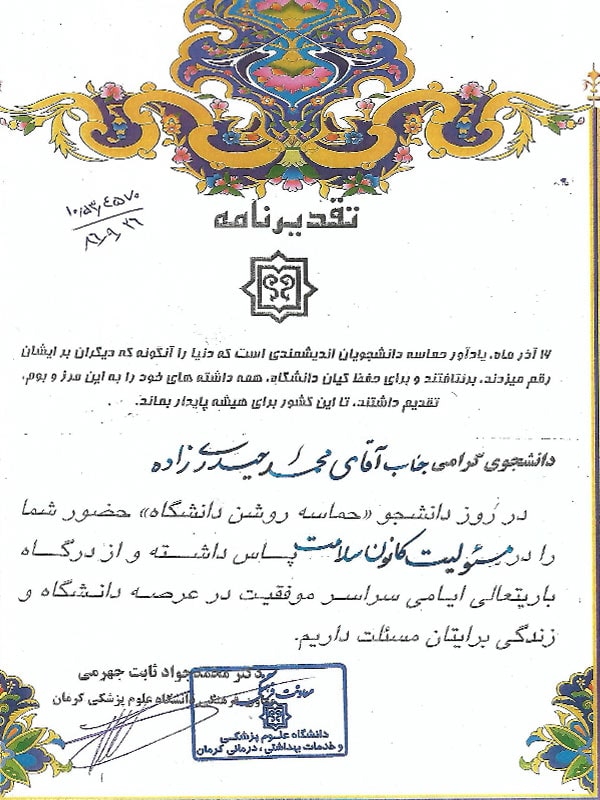 ۱۰,۵۳,۴۵۷۰
۸۶,۹,۲۶
تقدیرنامه
۱۶ آذر ماه، یادآور حماسه دانشجویان اندیشمندی است که دنیا را آنگونه که دیگران بر ایشان
رقم میزدند، برنتافتند و برای حفظ کیان دانشگاه، همه داشته های خود را به این مرز و بوم،
تقدیم داشتند، تا این کشور برای همیشه پایدار بماند.
دانشجوی گرامی جناب آقای محمد حیدری زاده
در روز دانشجو «حماسه روشن دانشگاه» حضور شما
را در مسئولیت کانون سلامت پاس داشته و از درگاه
باریتعالی ایامی سراسر موفقیت در عرصه دانشگاه و
زندگی برایتان مسئلت داریم.
دکتر محمدجواد ثابت جهرمی
معاون فرهنگی دانشگاه علوم پزشکی کرمان
معاونت فرهنگی
دانشگاه علوم پزشکی
و خدمات بهداشتی، درمانی کرمان